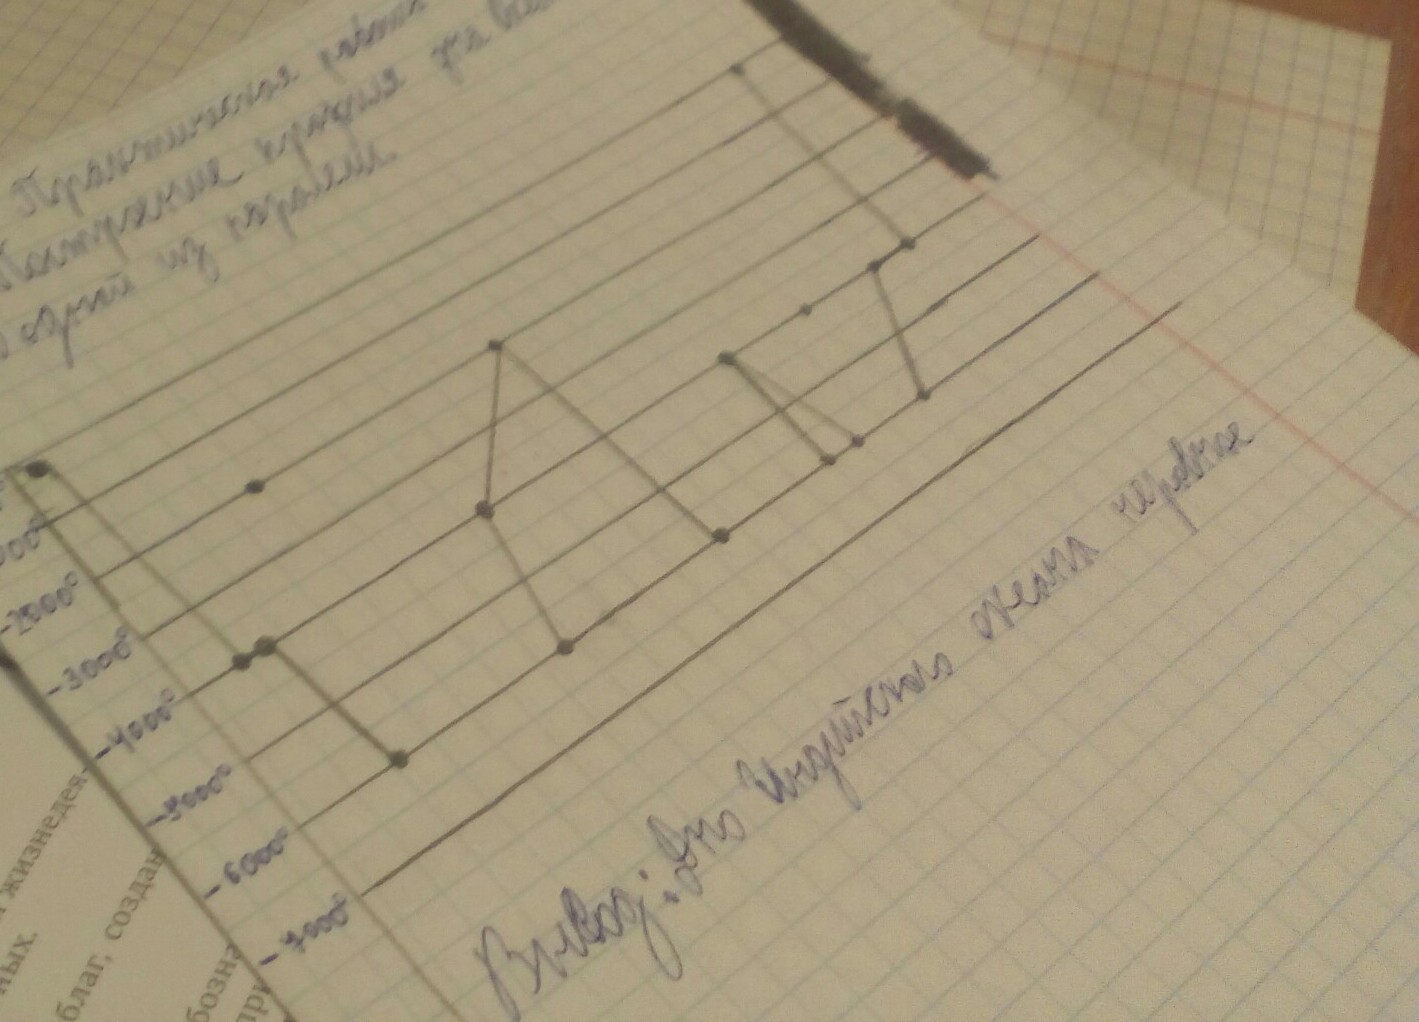 Практическая работа
Построение профиля дна
одной из параллели.
000°
-2000°
-3000°
-4000°
-5000°
-6000°
-7000°
Вывод: дно Индийского океана неровное
жизнедея
ных.
благ, создан
бозна
при